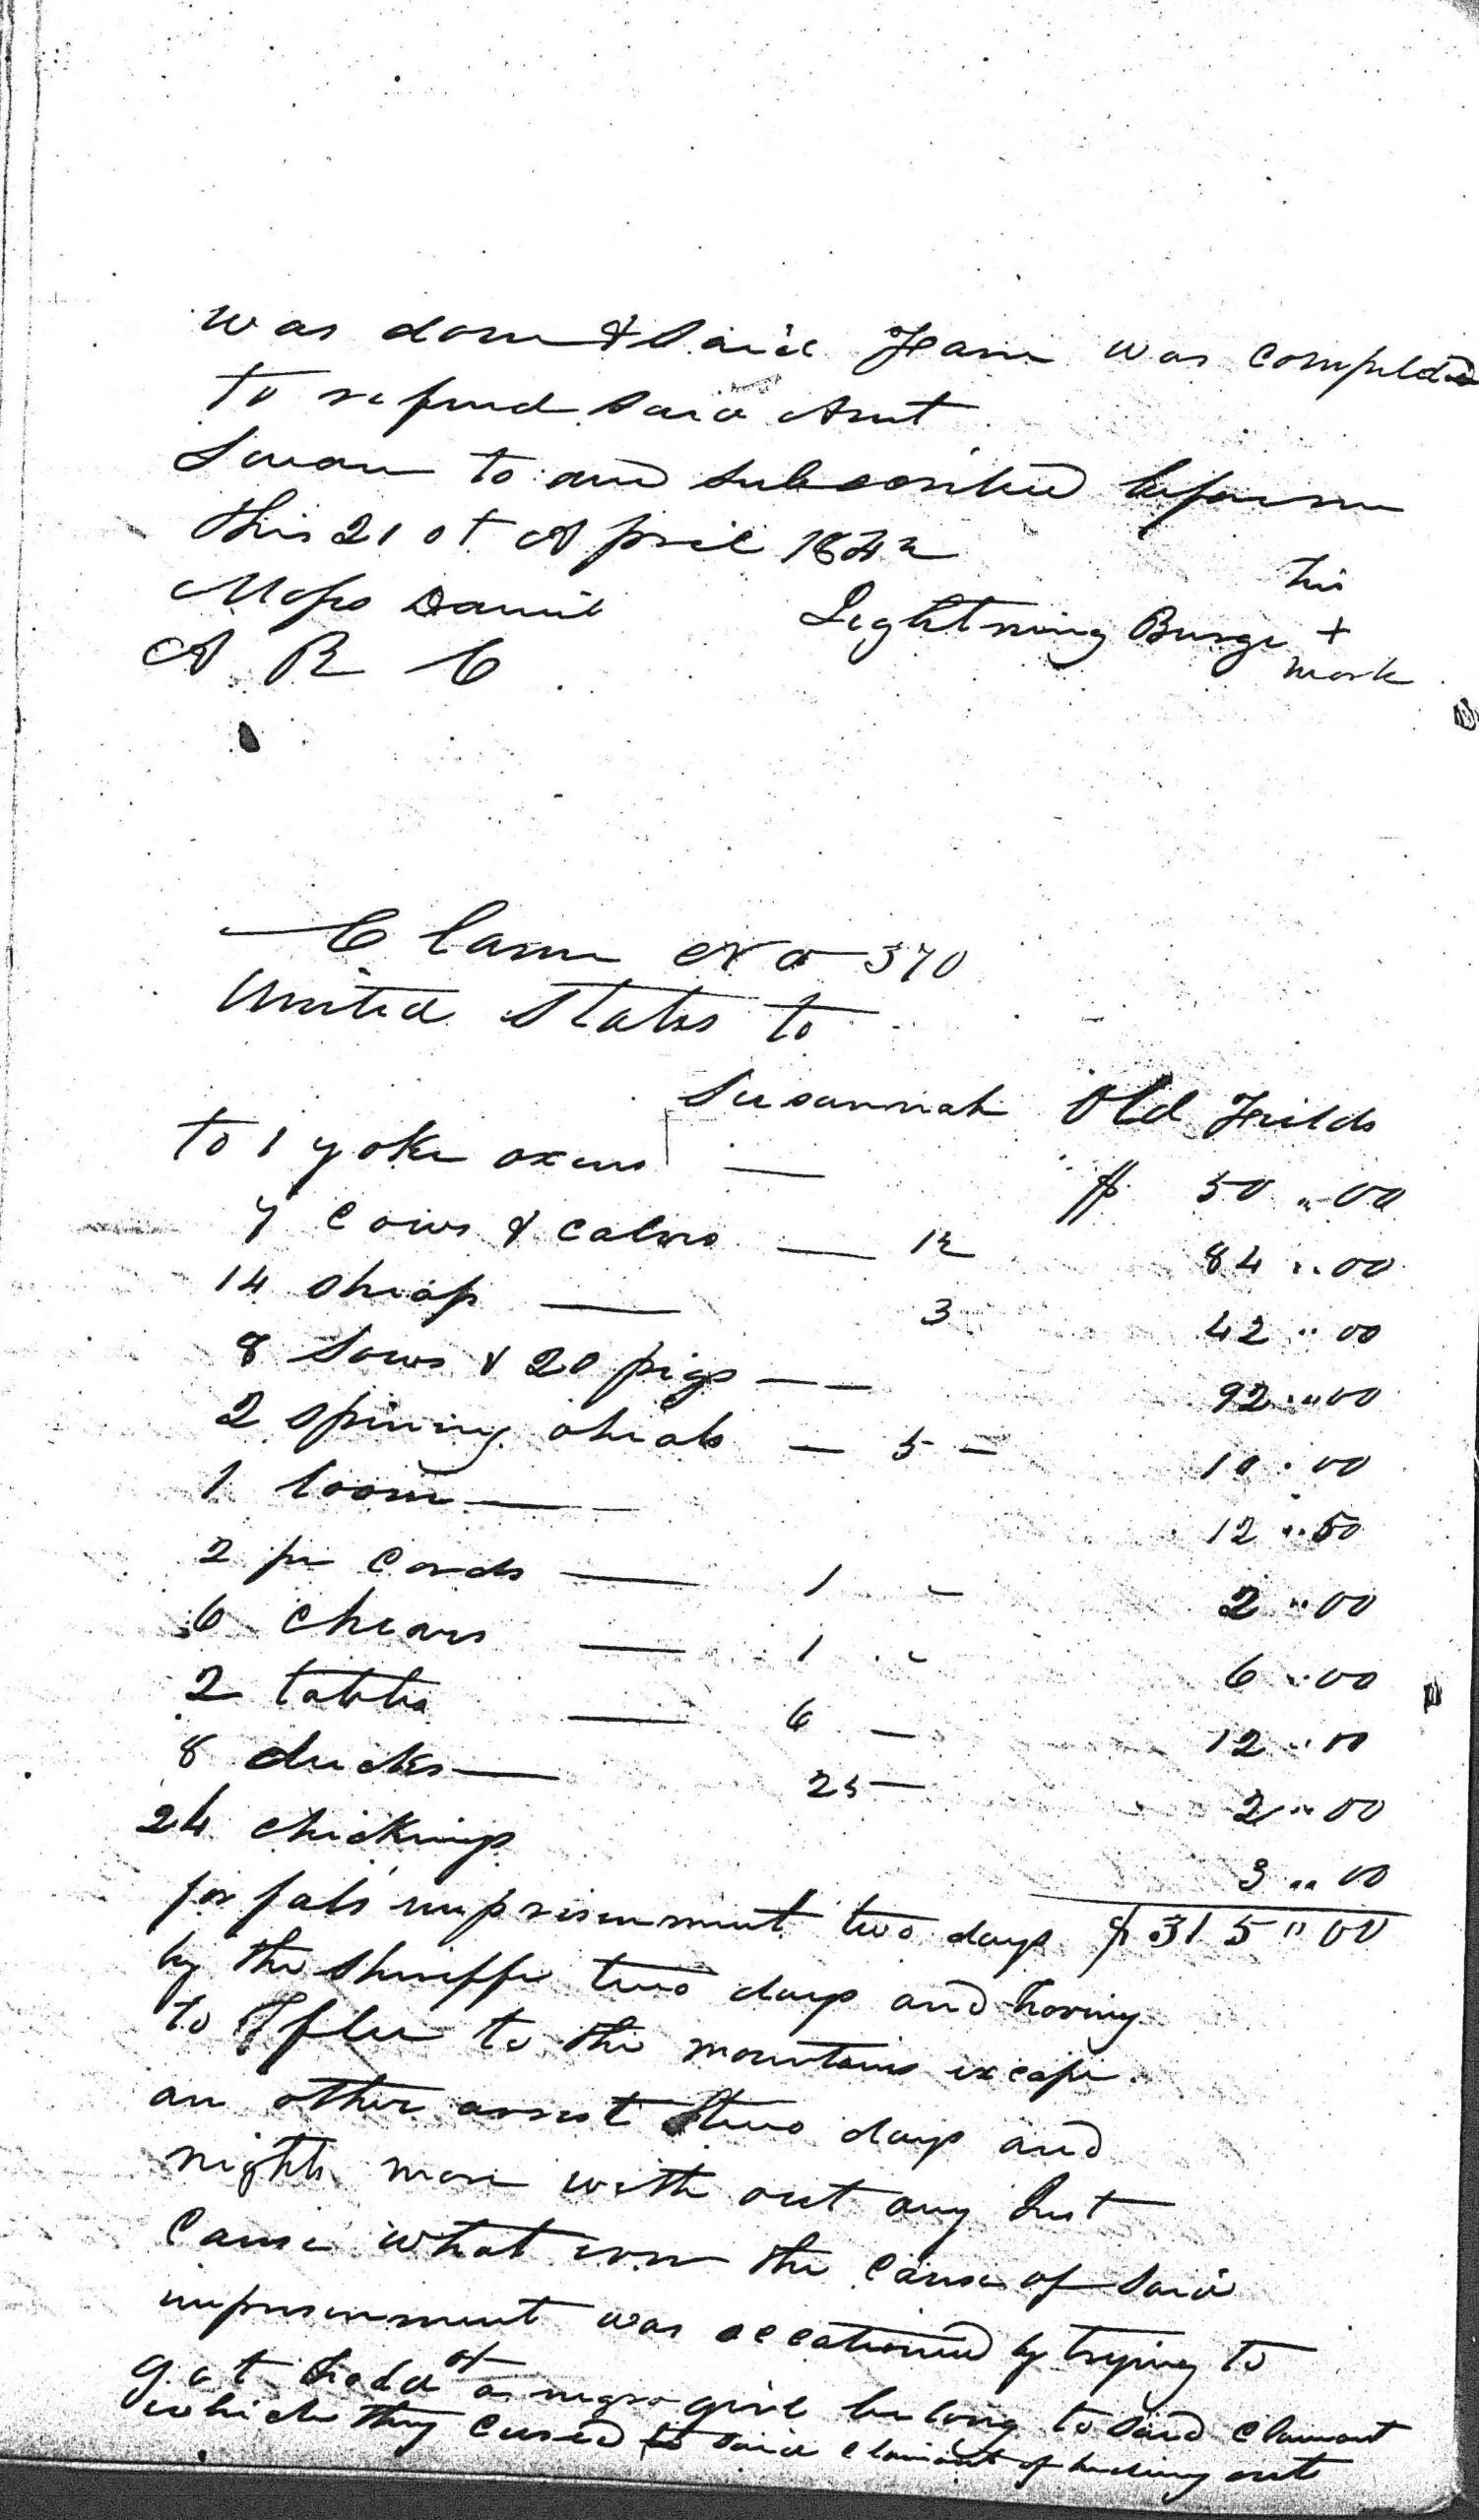 was done & Said Fane was compelled
to refund Said Amt
Sworn to and subscribed before me
this 21st April 1842
Moses Daniel
A R C
Lightning Burge his + mark
Clame No 370
United States to
Susannah Old Feilds
to 1 yoke oxens — $ 50 " 00
7 cows & calvs — 12 84 " 00
14 sheap — 3 42 " 00
8 Sows & 20 pigs — — 92 " 00
2 spining wheals — 5 — 10 " 00
1 loom — 12 " 50
2 pr Cards — 1 — 2 " 00
6 chears — 1 - 6 " 00
2 tables — 6 — 12 " 00
8 ducks — 25 — 2 " 00
24 chickings 3 " 00
for fals imprisenment two days $ 315 " 00
by the Shiriffe two days and having
to flee to the mountains excape
an other arrest two days and
nights more with out any Just
Cause what ever the cause of Said
imprisenment was occationed by trying to
get hold of a negro girl belong to Said Claimant
which they cused Said Claimant of hiding out